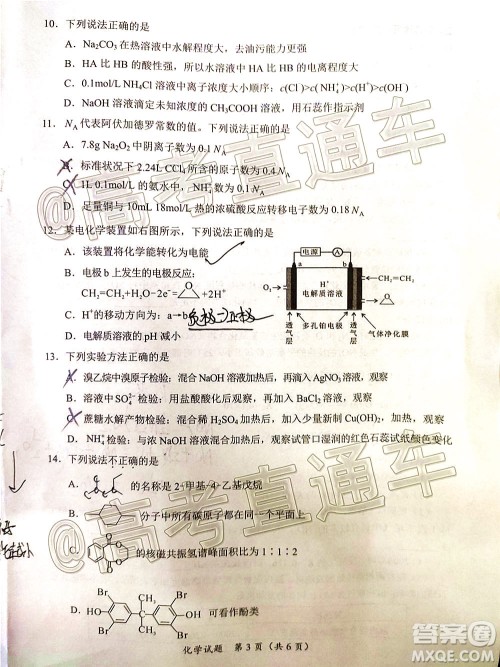 10. 下列说法正确的是
A. Na₂CO₃ 在热溶液中水解程度大，去油污能力更强
B. HA 比 HB 的酸性强，所以水溶液中 HA 比 HB 的电离程度大
C. 0.1mol/L NH₄Cl 溶液中离子浓度大小顺序：c(Cl⁻)>c(NH₄⁺)>c(H⁺)>c(OH⁻)
D. NaOH 溶液滴定未知浓度的 CH₃COOH 溶液，用石蕊作指示剂
11. Nₐ 代表阿伏加德罗常数的值。下列说法正确的是
A. 7.8g Na₂O₂ 中阴离子数为 0.1 Nₐ
B. 标准状况下 2.24L CCl₄ 所含的原子数为 0.4 Nₐ
C. 1L 0.1mol/L 的氨水中，NH₄⁺ 数为 0.1 Nₐ
D. 足量铜与 10mL 18mol/L 热的浓硫酸反应转移电子数为 0.18 Nₐ
12. 某电化学装置如右图所示，下列说法正确的是
A. 该装置将化学能转化为电能
B. 电极 b 上发生的电极反应：
CH₂=CH₂+H₂O-2e⁻= +2H⁺
C. H⁺的移动方向为：a→b
D. 电解质溶液的 pH 减小
电源
A
a
b
O₂
H⁺
电解质溶液
CH₂=CH₂
透气层
多孔铂电极
透气层
气体净化膜
13. 下列实验方法正确的是
A. 溴乙烷中溴原子检验：混合 NaOH 溶液加热后，再滴入 AgNO₃ 溶液，观察
B. 溶液中 SO₄²⁻ 检验：用盐酸酸化后，再加入 BaCl₂ 溶液，观察
C. 蔗糖水解产物检验：混合稀 H₂SO₄ 加热后，加入少量新制 Cu(OH)₂，加热，观察
D. NH₄⁺ 检验：与浓 NaOH 溶液混合加热后，观察试管口湿润的红色石蕊试纸颜色变化
14. 下列说法不正确的是
A. 的名称是 2-甲基-4-乙基戊烷
B. 分子中所有碳原子不可能在同一个平面上
C. 的核磁共振氢谱峰面积比为 1∶1∶2
D. Br Br HO CH₃ CH₃ OH Br Br 可看作酚类
化学试题 第 3 页（共 6 页）
@高考直通车
@高考直通车
答案圈
MXQE.COM